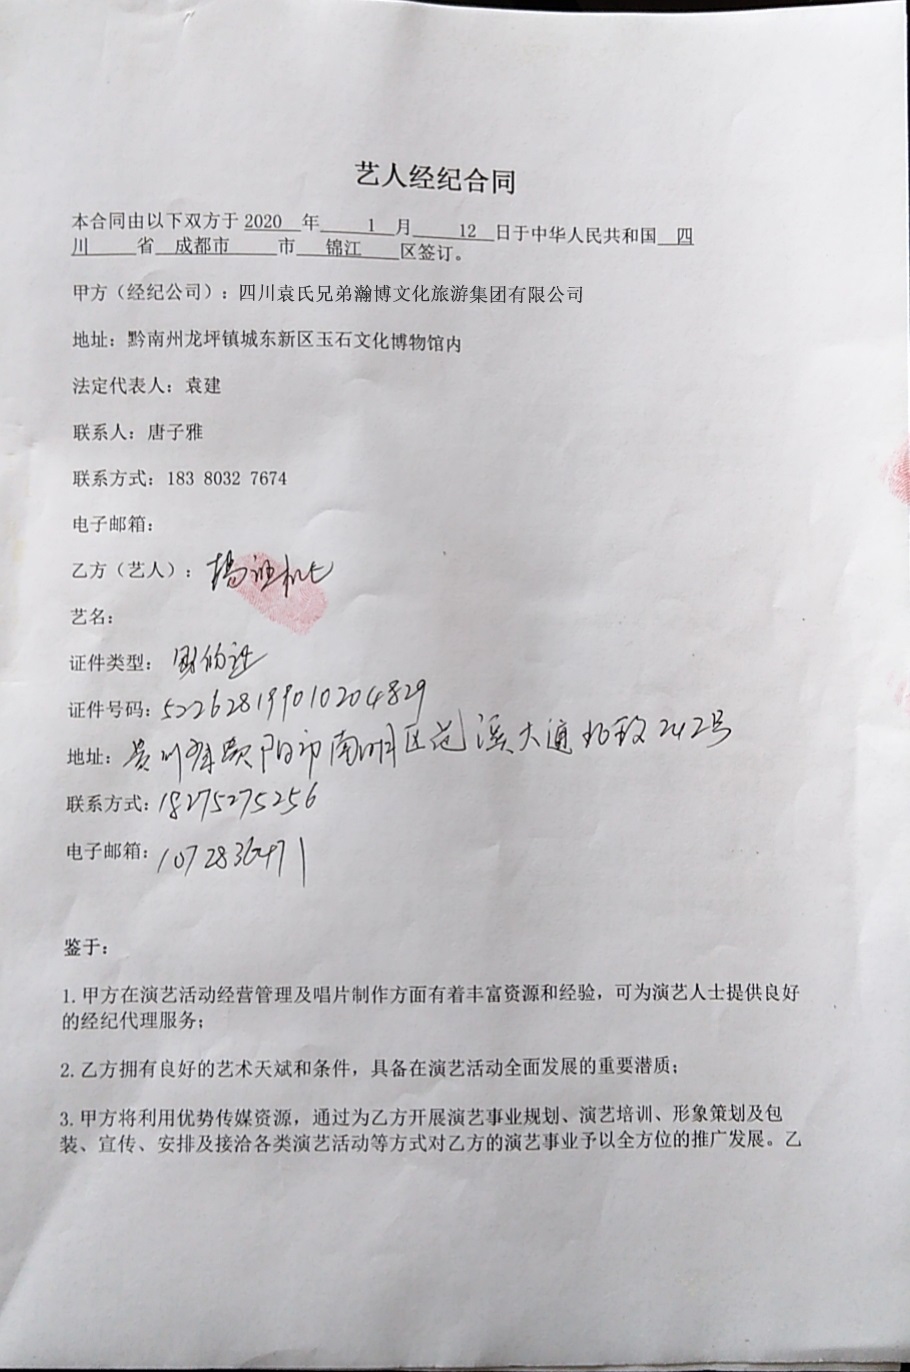 艺人经纪合同
本合同由以下双方于 2020 年 1 月 12 日于中华人民共和国 四
川 省 成都市 市 锦江 区签订。
甲方（经纪公司）：四川袁氏兄弟瀚博文化旅游集团有限公司
地址：黔南州龙坪镇城东新区玉石文化博物馆内
法定代表人：袁建
联系人：唐子雅
联系方式：183 8032 7674
电子邮箱：
乙方（艺人）：杨
艺名：
证件类型：
证件号码：522628199010204829
地址：贵州省贵阳市南明区 溪大道 242号
联系方式：18275275256
电子邮箱：1072836471
鉴于：
1. 甲方在演艺活动经营管理及唱片制作方面有着丰富资源和经验，可为演艺人士提供良好
的经纪代理服务；
2. 乙方拥有良好的艺术天斌和条件，具备在演艺活动全面发展的重要潜质；
3. 甲方将利用优势传媒资源，通过为乙方开展演艺事业规划、演艺培训、形象策划及包
装、宣传、安排及接洽各类演艺活动等方式对乙方的演艺事业予以全方位的推广发展。乙